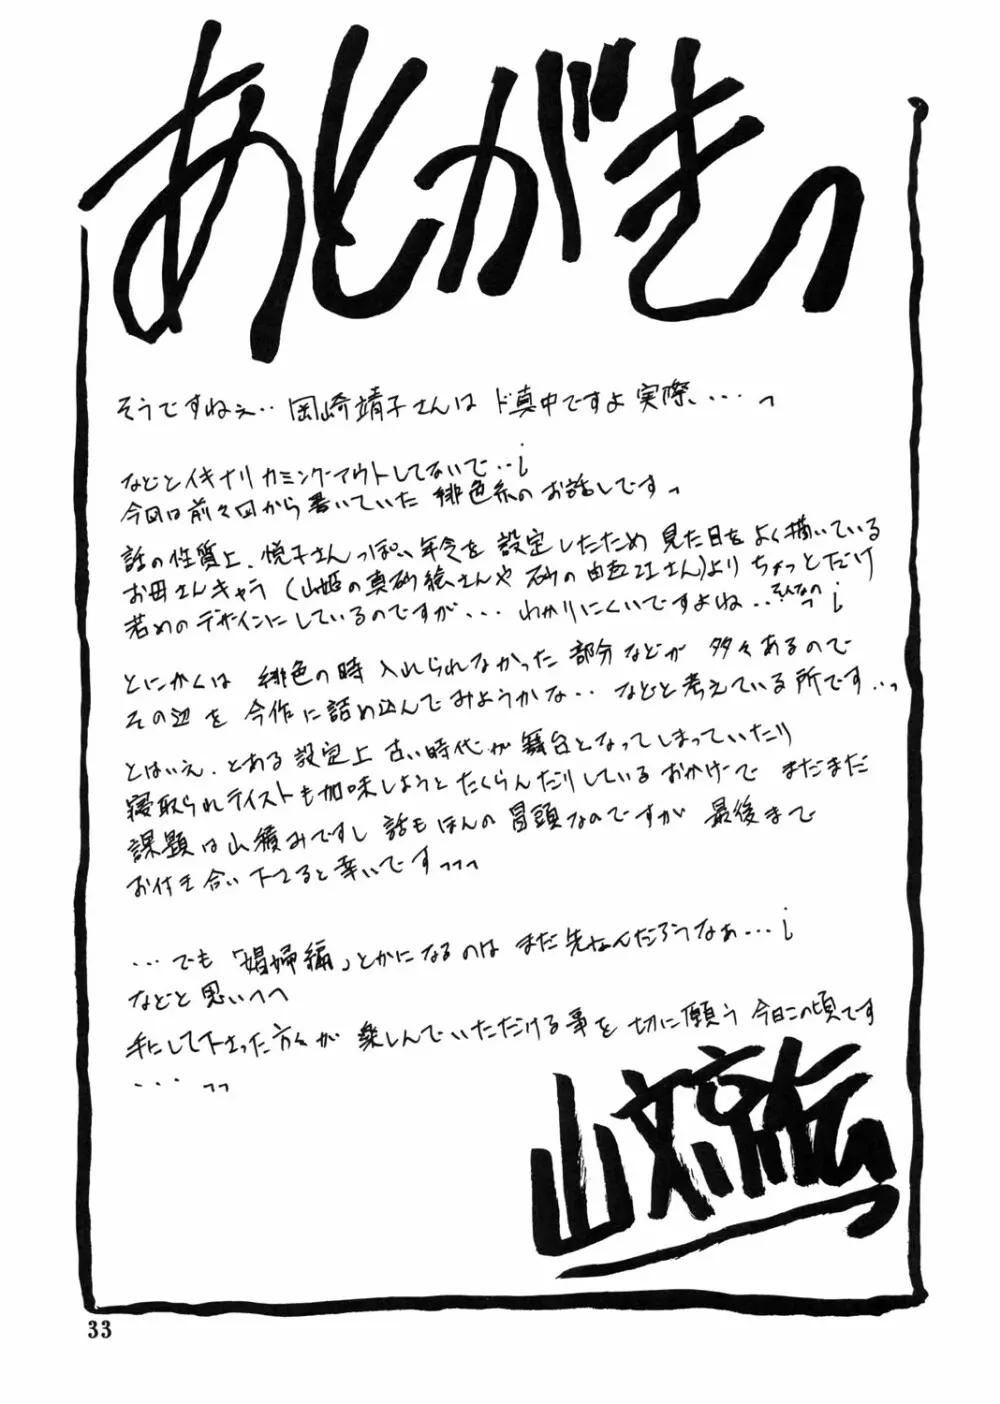 あとがきっ
そうですねぇ‥岡崎靖子さんは ド真中ですよ実際、‥‥っ
などとイキナリ カミングアウトしてないで‥¡
今回は前々回から書いていた 緋色系の お話しですっ
話の性質上、悦子さんっぽい年令を 設定したため 見た目をよく描いている
お母さんキャラ(山姫の真砂絵さんや 砂の由起江さん)より ちょっとだけ
若めのデザインにしているのですが... わかりにくいですよね‥そんなの¡
とにかくは 緋色の時 入れられなかった 部分などが 多々あるので
その辺を 今作に詰め込んでみようかな‥ などと考えている所です‥っ
とはいえ、とある設定上 古い時代が舞台となってしまっていたり
寝取られテイストも加味しようと たくらんだりしているおかげで まだまだ
課題は山積みですし 話もほんの冒頭なのですが 最後まで
お付き合い下さると幸いですっっっ
...でも「娼婦編」とかになるのは まだ先なんだろうなぁ...¡
などと思いつつ
手にして下さった方々が 楽しんでいただける事を 切に願う 今日この頃です
...っっ
山文京伝
33